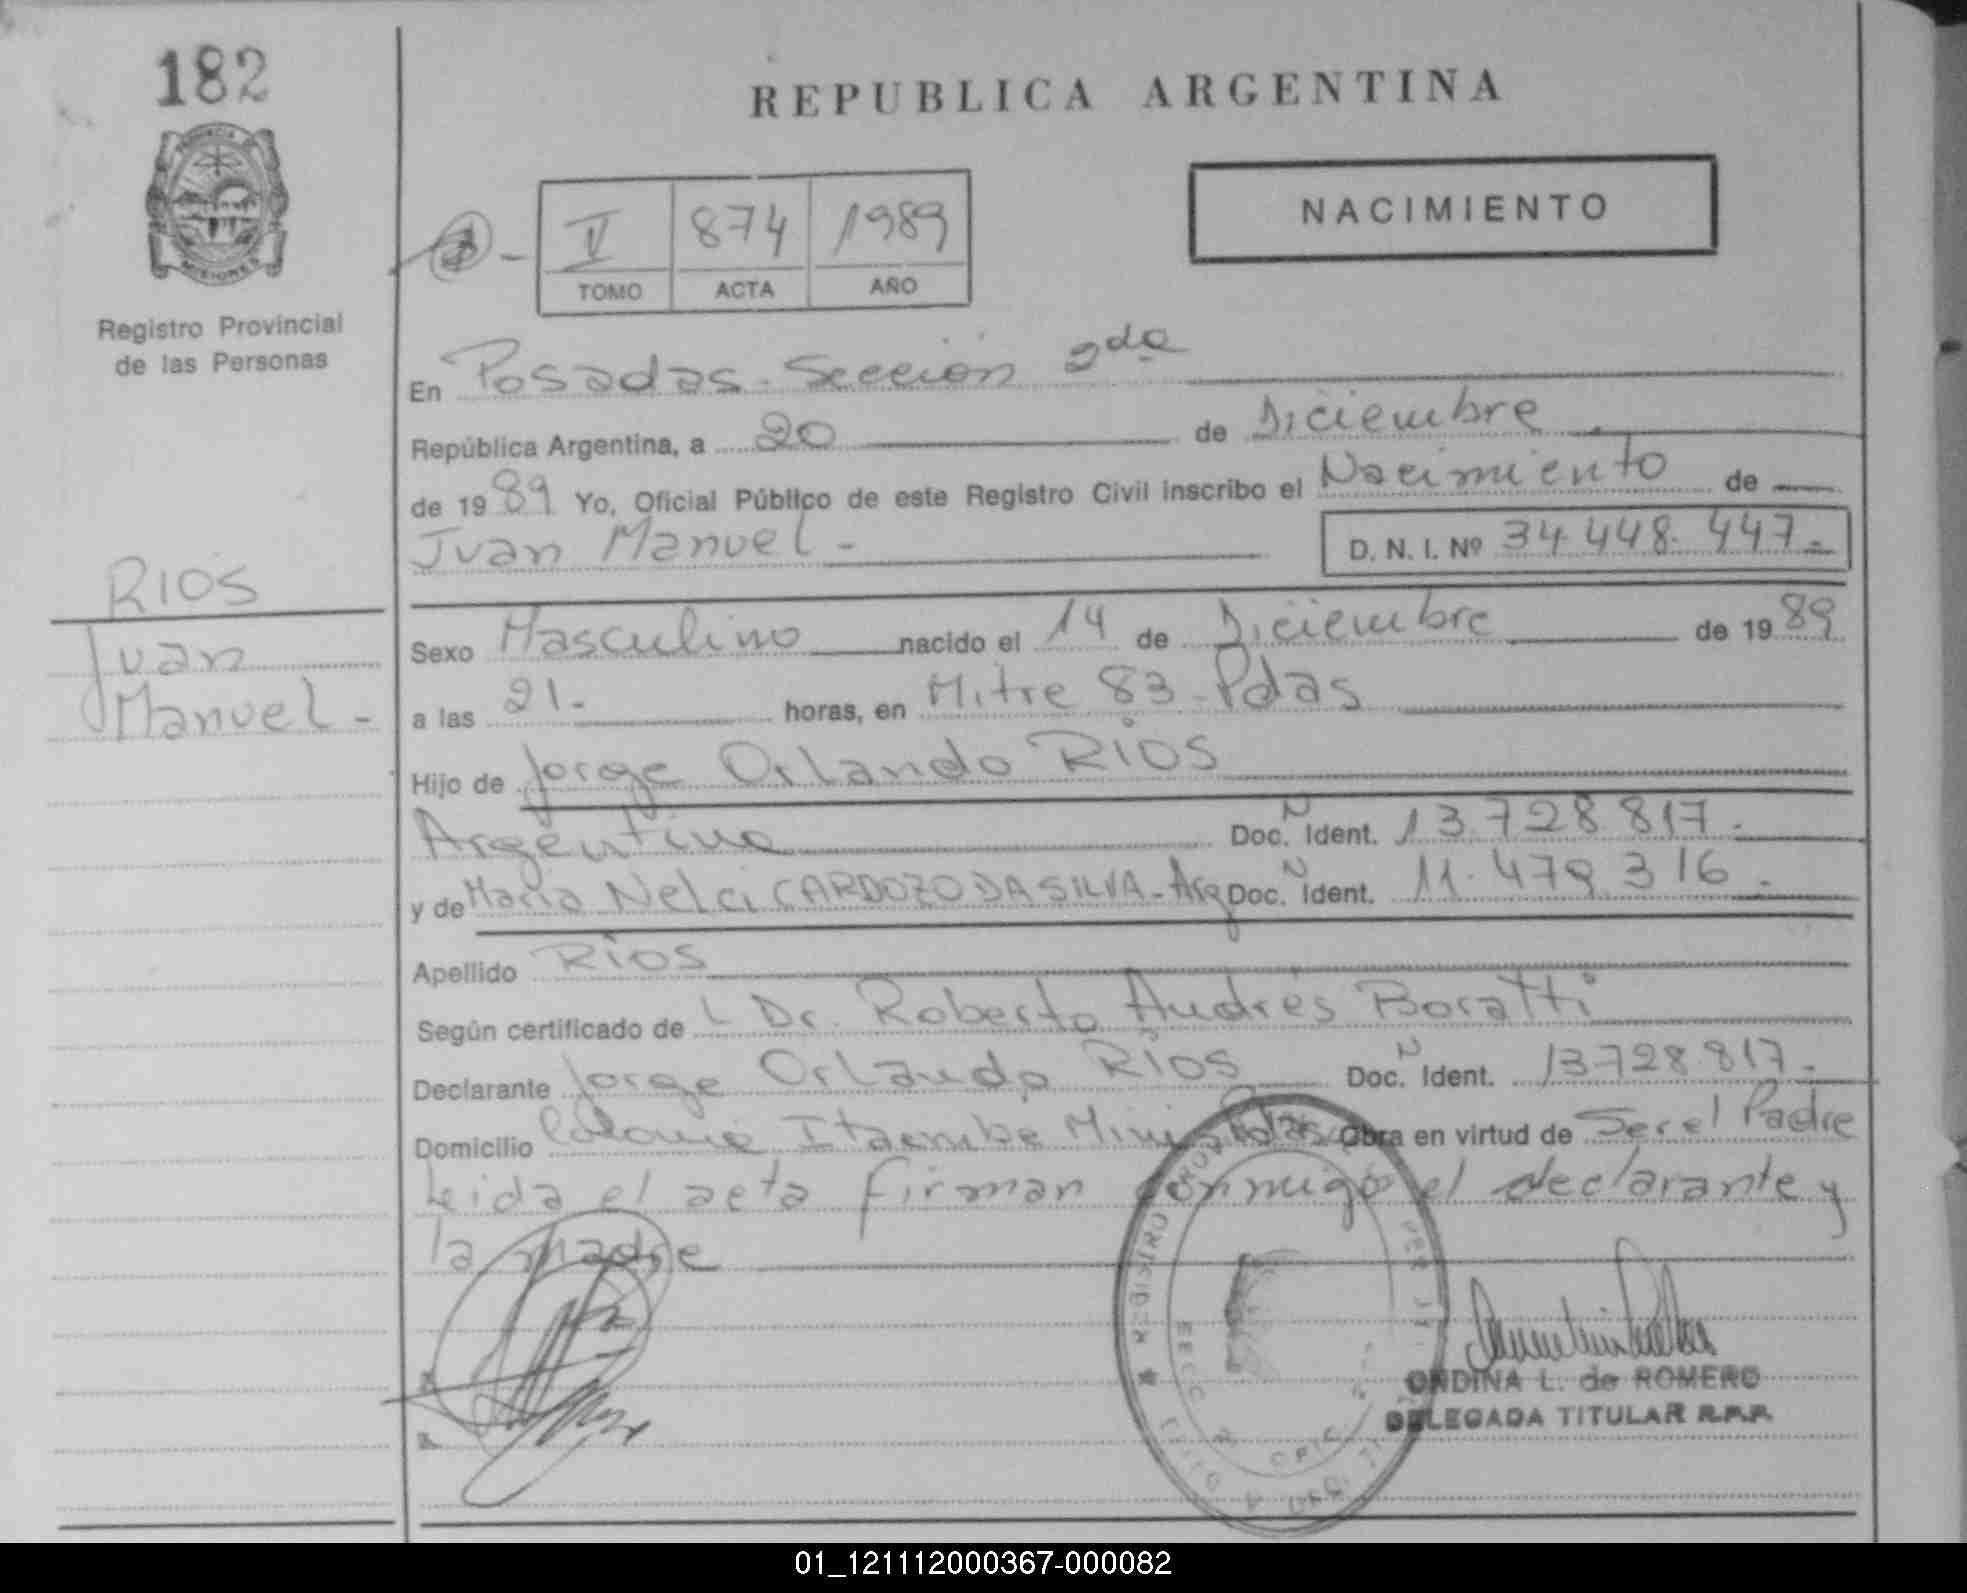 182
PROVINCIA DE
MISIONES
Registro Provincial
de las Personas
REPUBLICA ARGENTINA
NACIMIENTO
874 1989
TOMO ACTA AÑO
En Posadas - Sección 2da
República Argentina, a 20 de Diciembre
de 1989 Yo, Oficial Público de este Registro Civil inscribo el Nacimiento de
Juan Manuel -
D. N. I. Nº 34.448.447.-
RIOS
Juan
Manuel -
Sexo Masculino nacido el 14 de Diciembre de 1989
a las 21.- horas, en Mitre 83 - Pdas
Hijo de Jorge Orlando RIOS
Argentino Doc. N Ident. 13.728.817.-
y de Maria Nelci CARDOZO DA SILVA - Arg Doc. N Ident. 11.479.316.-
Apellido RIOS
Según certificado de L Dr. Roberto Andrés Boratti
Declarante Jorge Orlando RIOS Doc. N Ident. 13.728.817.-
Domicilio Colonia Itaembe Mini Pdas Obra en virtud de Ser el Padre
Leida el acta firman conmigo el declarante y
la madre
ORDINA L. de ROMERO
DELEGADA TITULAR R.P.P.
01_121112000367-000082